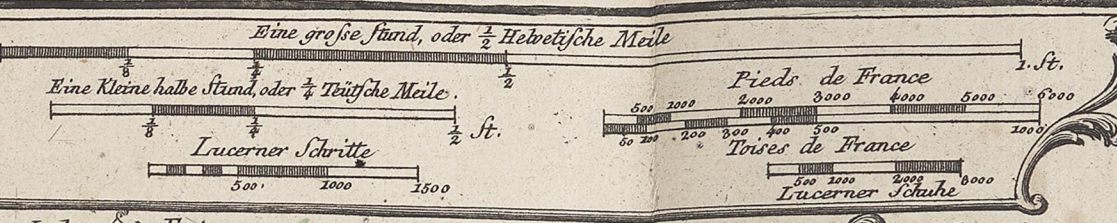 Eine grosse Stund, oder 1/2 Helvetische Meile
1/8 1/4 1/2 1. St.
Eine Kleine halbe Stund, oder 1/4 Teütsche Meile.
1/8 1/4 1/2 St.
Lucerner Schritte
500 1000 1500
Pieds de France
500 1000 2000 3000 4000 5000 6000
50 100 200 300 400 500 1000
Toises de France
500 1000 2000 3000
Lucerner Schuhe